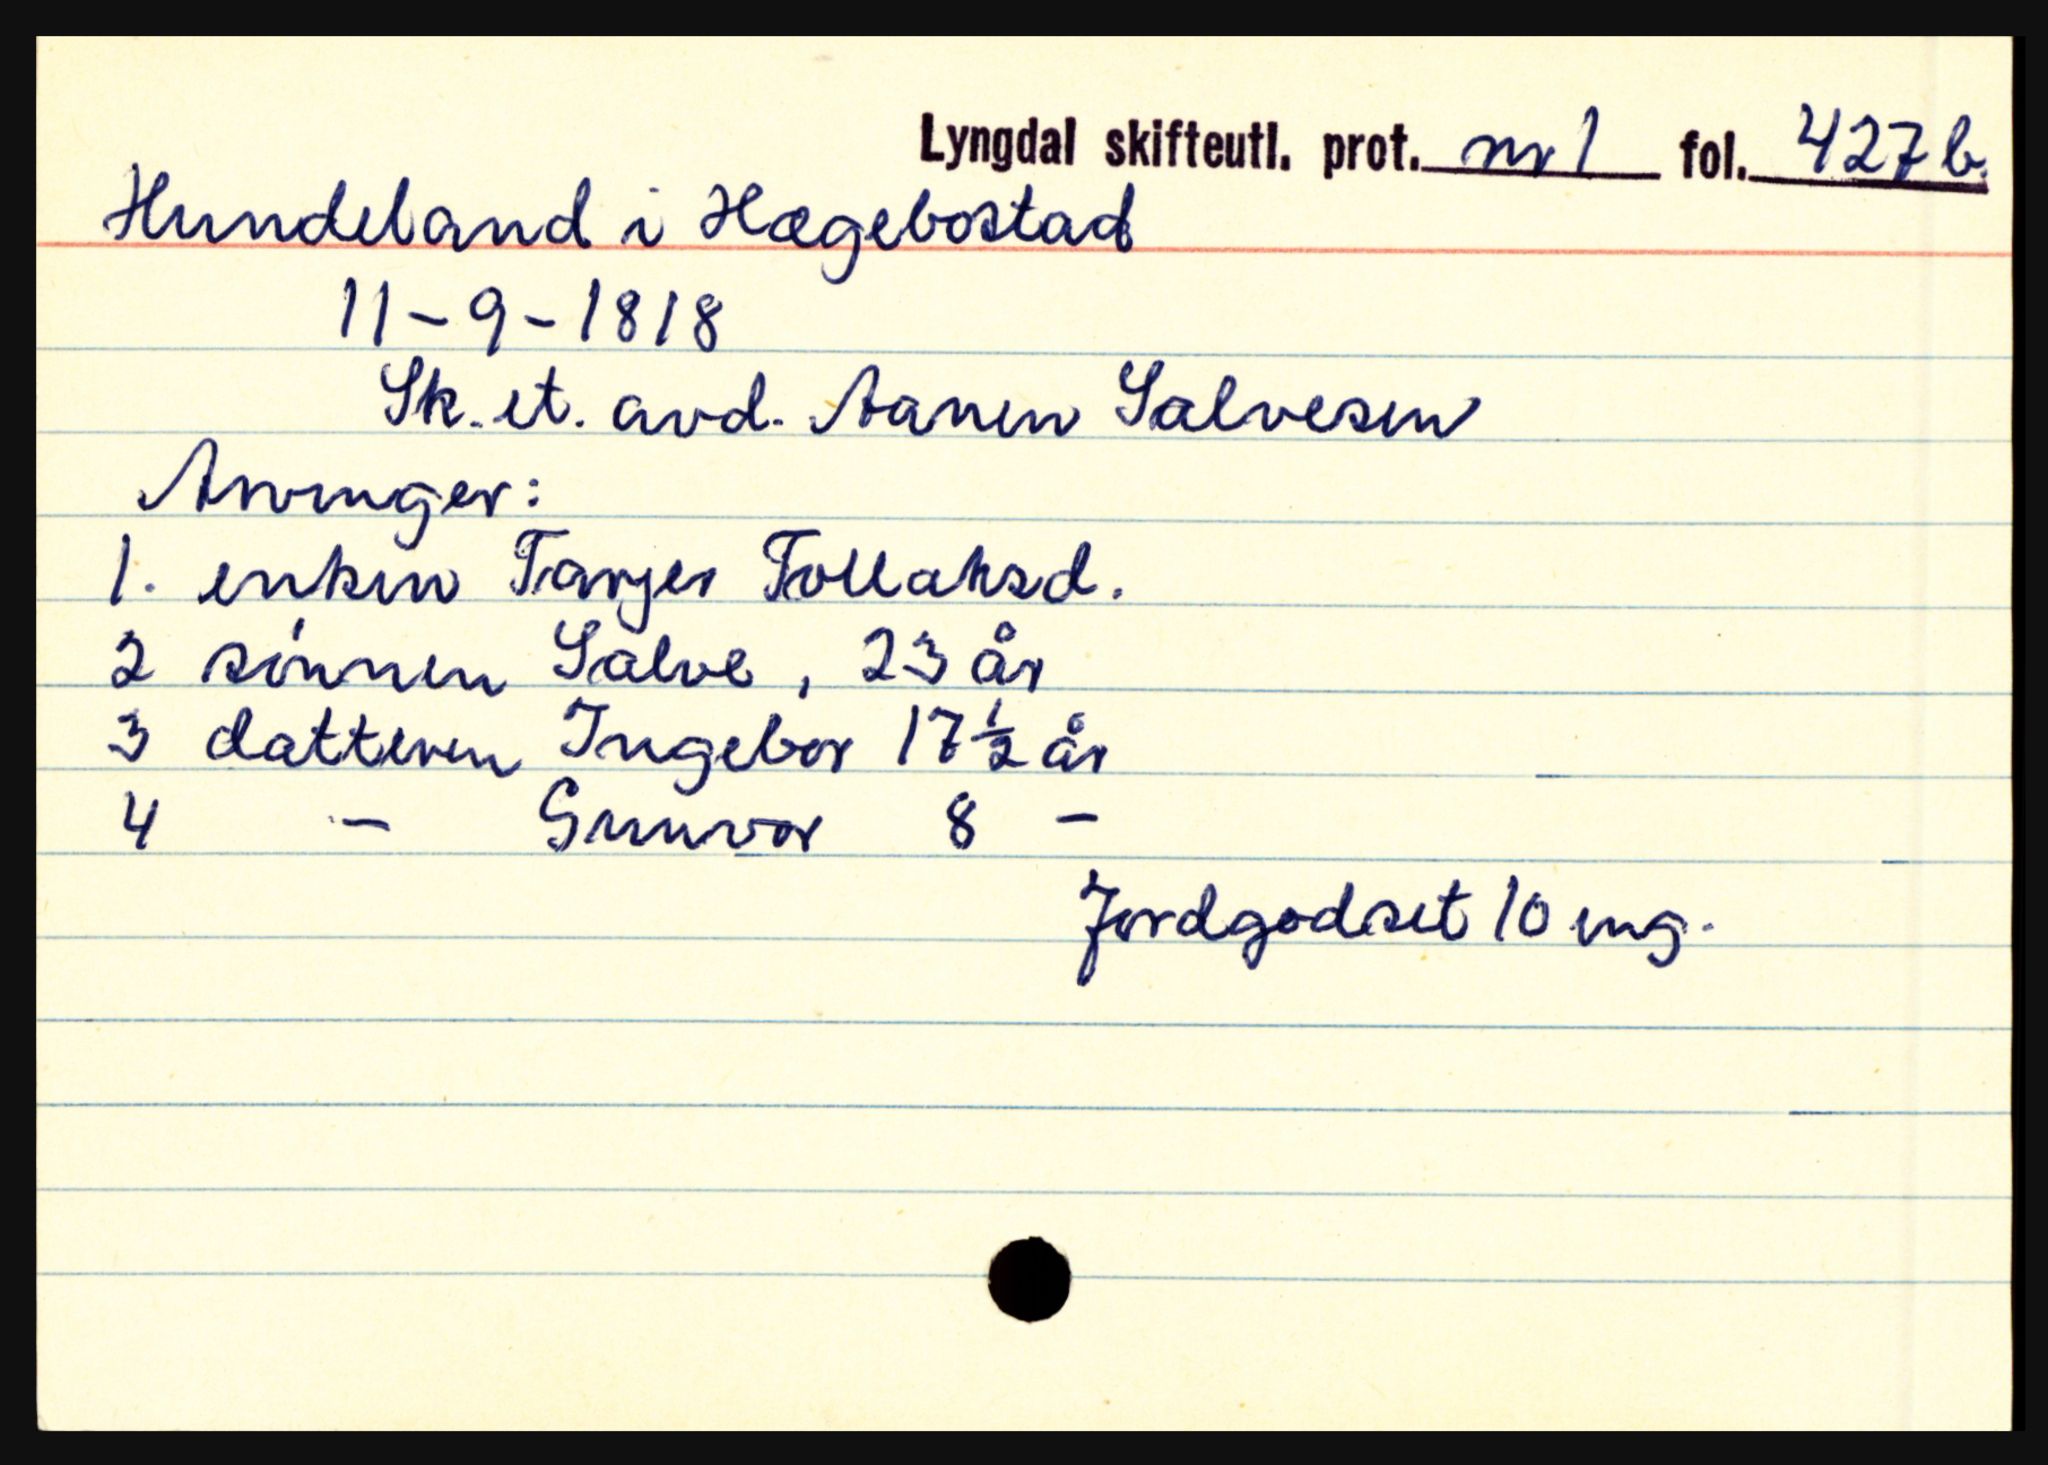 Lyngdal skifteutl. prot. nr 1 fol. 427 b.
Hundeland i Hægebostad
11-9-1818
Sk. et. avd. Aanen Salvesen
Arvinger:
1. enken Tarjer Tollaksd.
2 sónnen Salve, 23 år
3 datteren Ingebor 17 ½ år
4 - Gunvor 8 -
Jordgodset 10 mg.